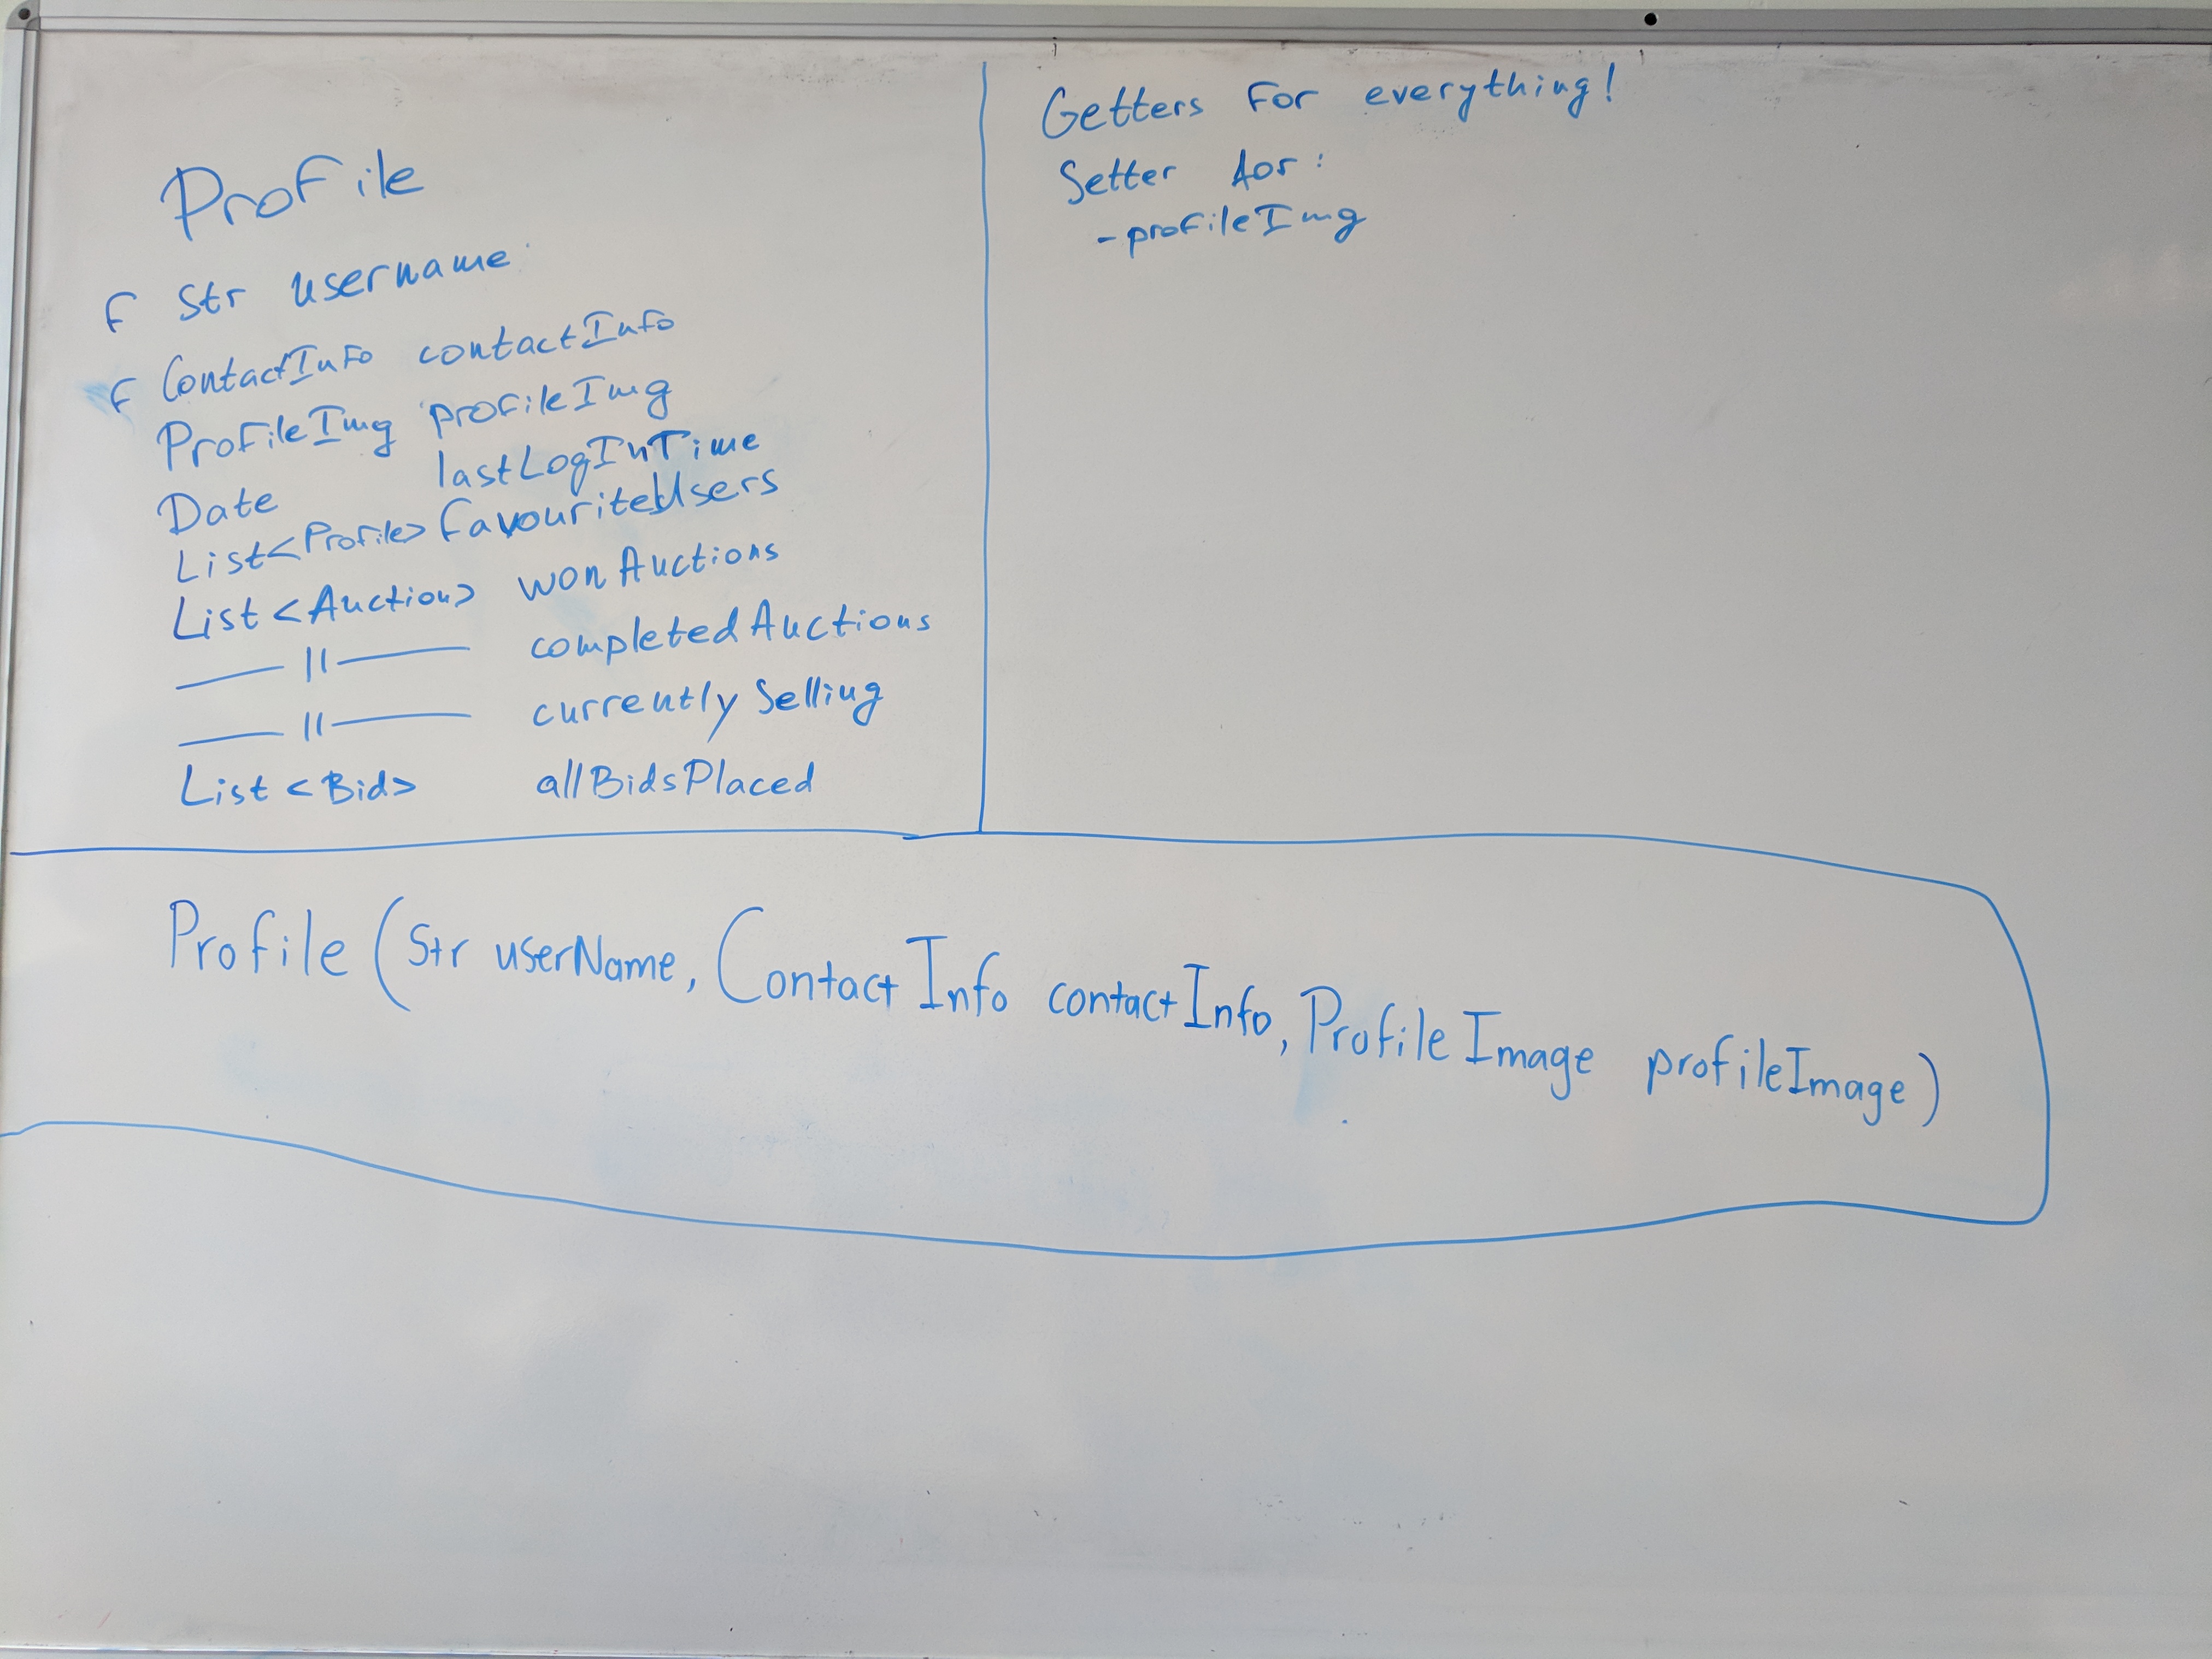 Profile
F Str username
F ContactInfo contactInfo
ProfileImg profileImg
Date lastLogInTime
List<Profile> favouritedUsers
List<Auction> wonAuctions
—— || —— completedAuctions
—— || —— currentlySelling
List<Bid> allBidsPlaced
Getters for everything!
Setter for:
- profileImg
Profile (Str userName, ContactInfo contactInfo, ProfileImage profileImage)